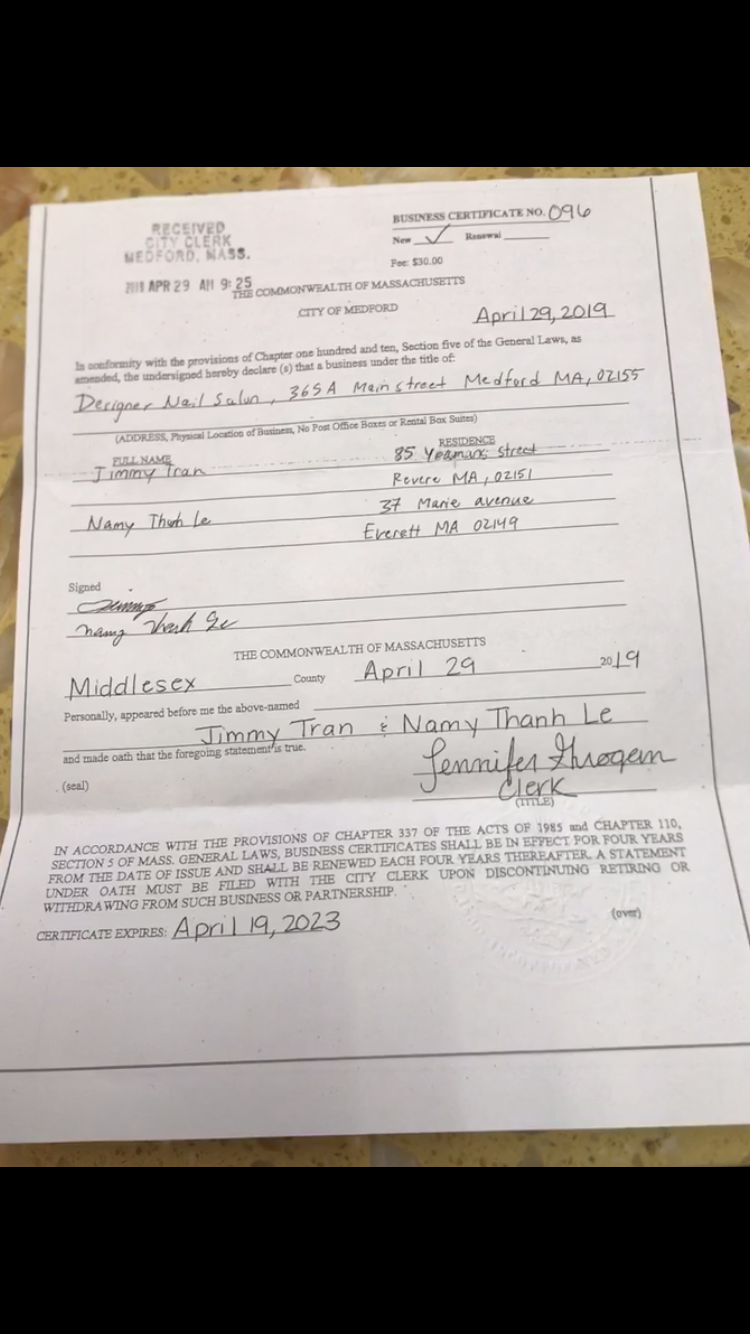 RECEIVED
CITY CLERK
MEDFORD, MASS.
APR 29 AM 9:25
BUSINESS CERTIFICATE NO. 096
New ✓ Renewal
Fee: $30.00
THE COMMONWEALTH OF MASSACHUSETTS
CITY OF MEDFORD
April 29, 2019
In conformity with the provisions of Chapter one hundred and ten, Section five of the General Laws, as
amended, the undersigned hereby declare (s) that a business under the title of:
Designer Nail Salon, 365A Main street Medford MA, 02155
(ADDRESS, Physical Location of Business, No Post Office Boxes or Rental Box Suites)
FULL NAME RESIDENCE
Jimmy Tran 85 Yeamans Street
Revere MA, 02151
Namy Thanh Le 37 Marie avenue
Everett MA 02149
Signed
Jimmy
Namy Thanh Le
THE COMMONWEALTH OF MASSACHUSETTS
Middlesex County April 29 2019
Personally, appeared before me the above-named
Jimmy Tran & Namy Thanh Le
and made oath that the foregoing statement is true.
Jennifer
(seal)
Clerk
(TITLE)
IN ACCORDANCE WITH THE PROVISIONS OF CHAPTER 337 OF THE ACTS OF 1985 and CHAPTER 110,
SECTION 5 OF MASS. GENERAL LAWS, BUSINESS CERTIFICATES SHALL BE IN EFFECT FOR FOUR YEARS
FROM THE DATE OF ISSUE AND SHALL BE RENEWED EACH FOUR YEARS THEREAFTER. A STATEMENT
UNDER OATH MUST BE FILED WITH THE CITY CLERK UPON DISCONTINUING RETIRING OR
WITHDRAWING FROM SUCH BUSINESS OR PARTNERSHIP.
(over)
CERTIFICATE EXPIRES: April 19, 2023